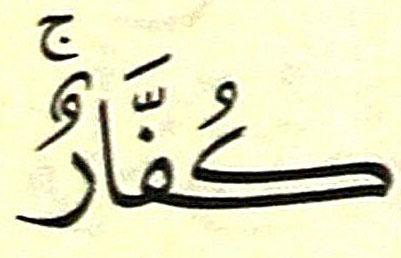 كُفَّارٌۚ